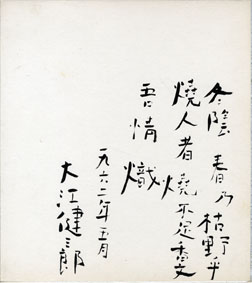 冬陰 春乃枯野乎
燒人者 燒不足香文
吾情 熾
一九六二年五月
大江健三郎